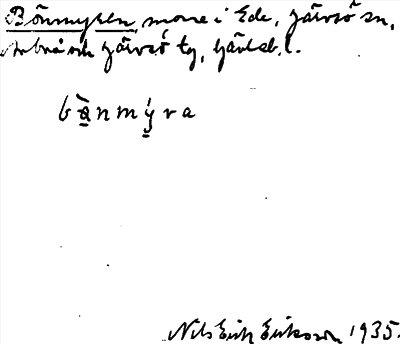 Bönmyren, mosse i Ede, Järvsö sn,
Arbrå och Järvsö tg, Gävleb. l.
bä̀nmýra
Nils Erik Eriksson 1935.